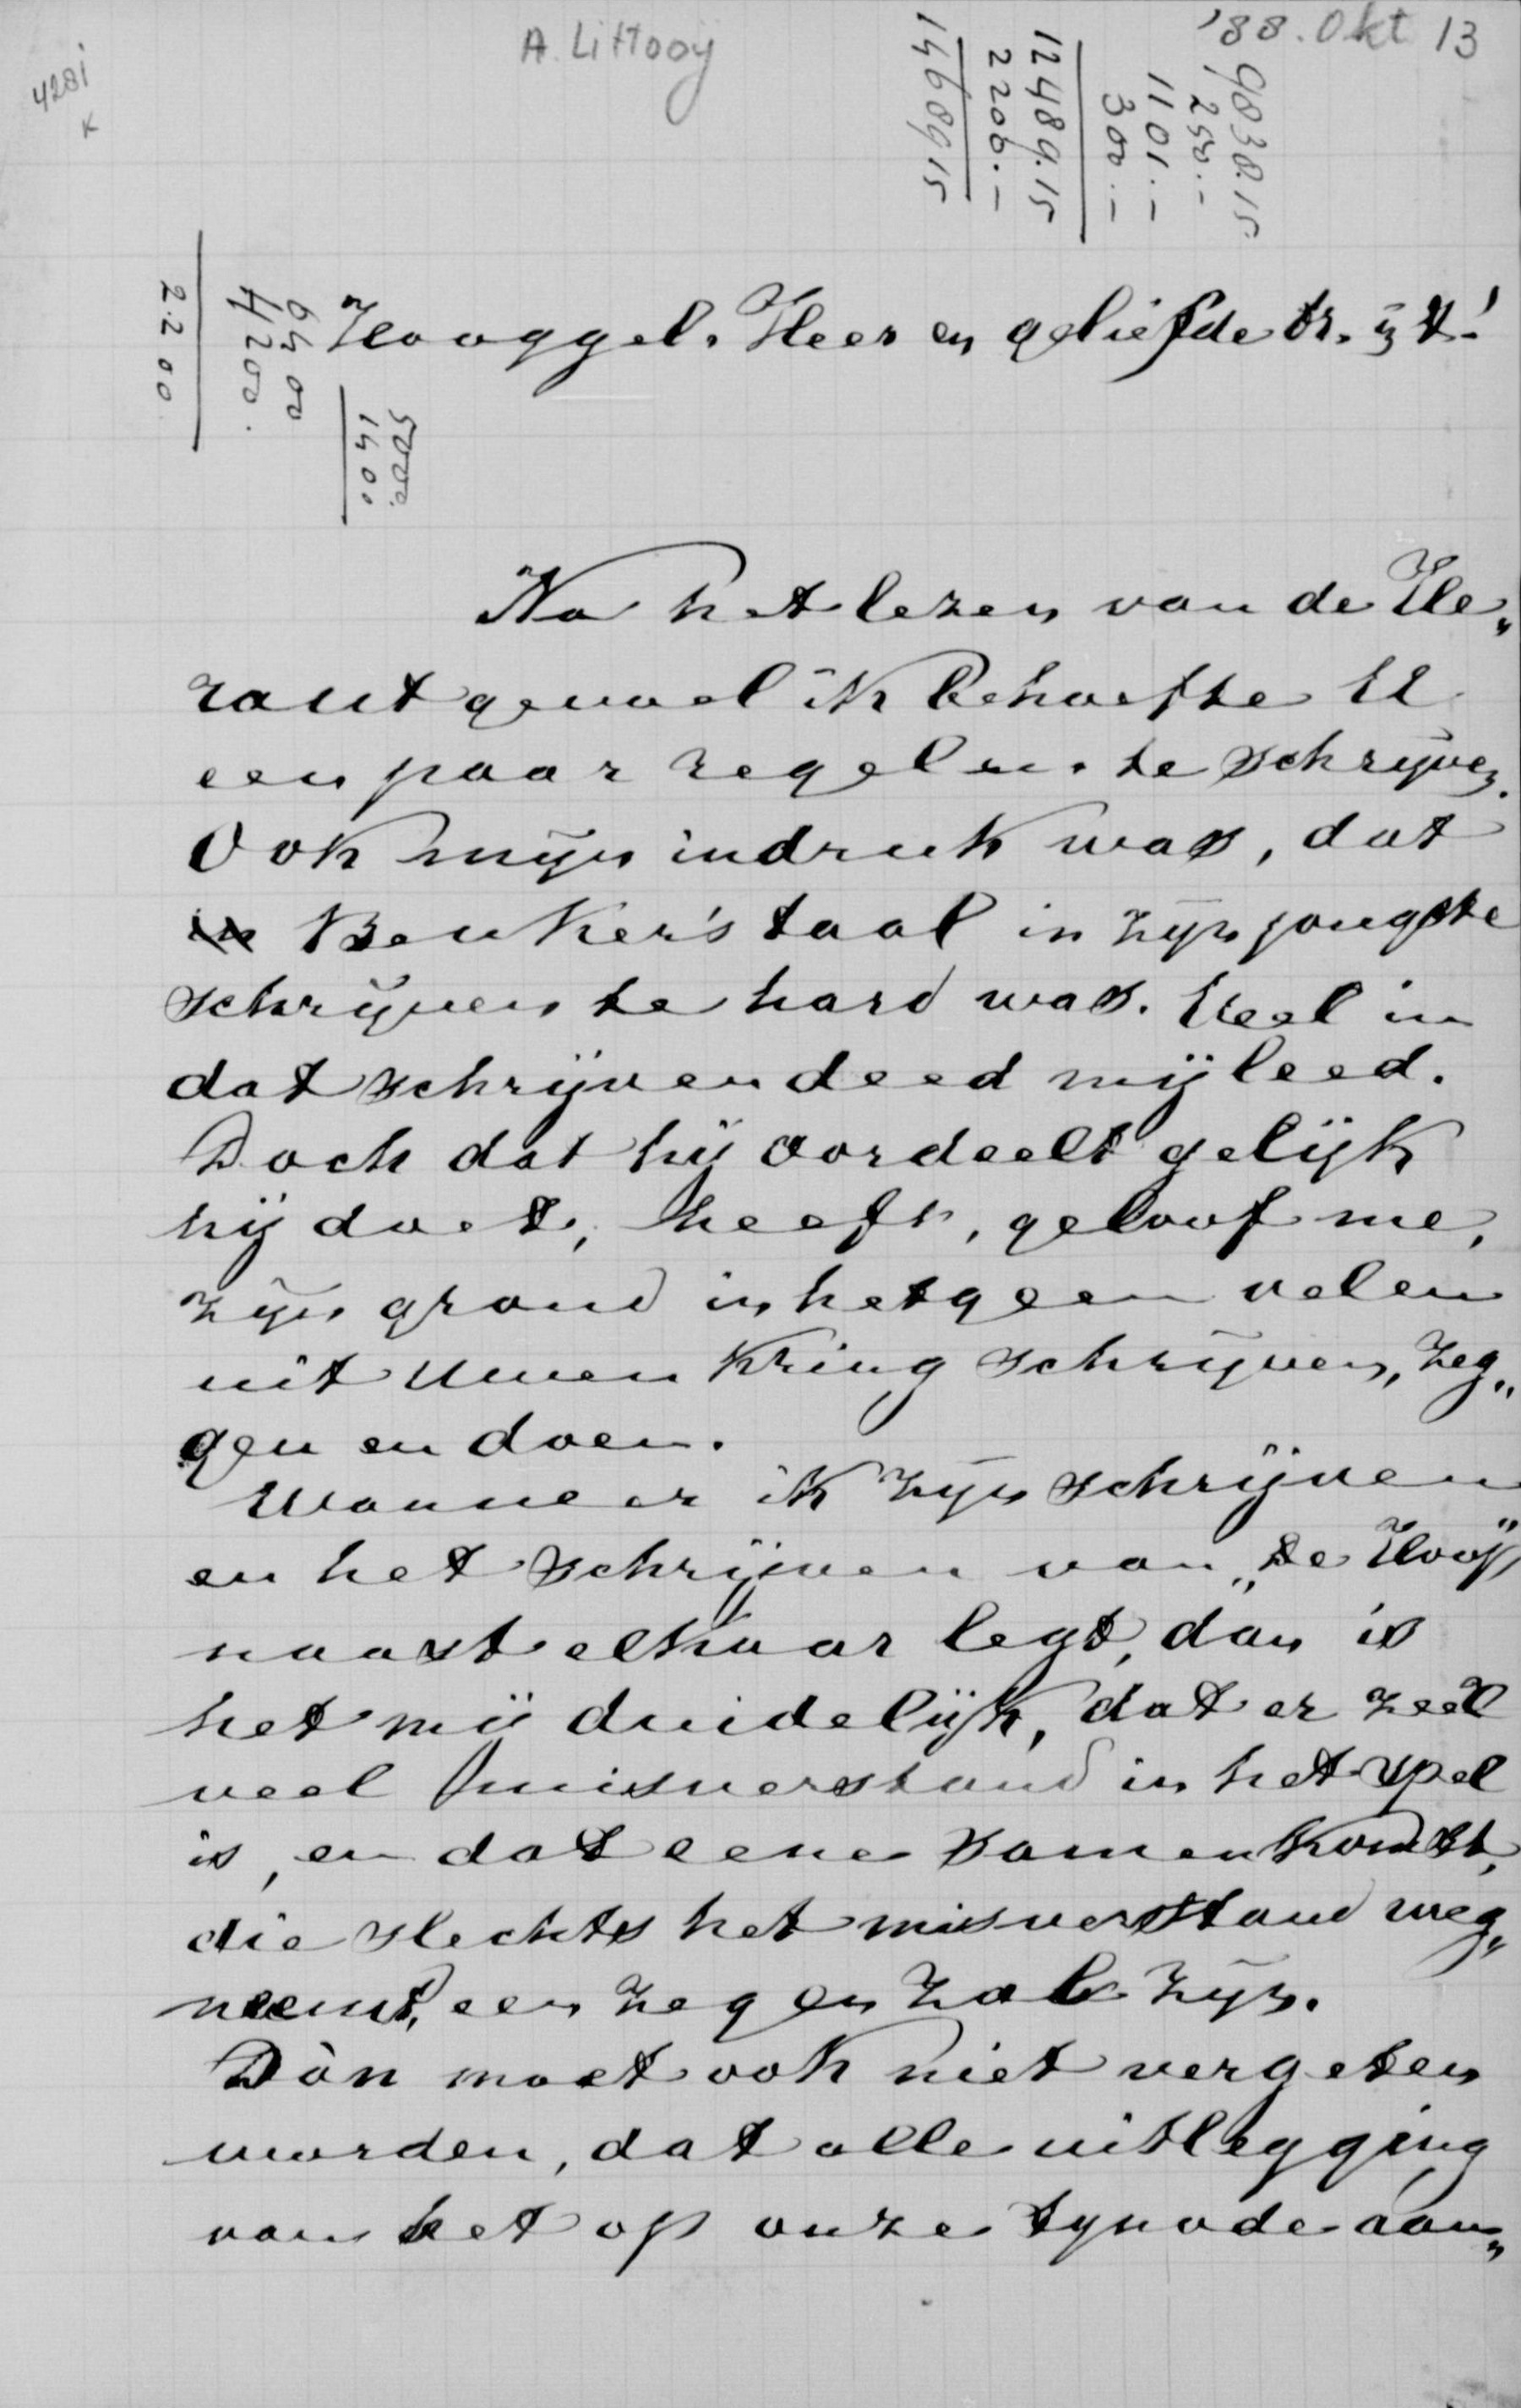 4281
x
A. Littooij
'88. Okt 13
9838.15
250.-
1101.-
300.-
12489.15
2200.-
14689 15
6400
4200.
2200
5000.
1400
Hooggel. Heer en geliefde br. i/d H!
Na het lezen van de He„
raut gevoel ik behoefte U
een paar regelen te schrijven.
Ook mijn indruk was, dat
Beuker's taal in zijn jongste
schrijven te hard was. Veel in
dat schrijven deed mij leed.
Doch dat hij oordeelt gelijk
hij doet, heeft, geloof me,
zijn grond in hetgeen velen
uit Uwen kring schrijven, zeg„
gen en doen.
Wanneer ik zijn schrijven
en het schrijven van „de Hoop"
naast elkaar legt, dan is
het mij duidelijk, dat er zeer
veel misverstand in het spel
is, en dat eene samenkomst,
die slechts het misverstand weg„
neemt, een zegen zal zijn.
Dan moet ook niet vergeten
worden, dat alle uitlegging
van het op onze Synode aan„